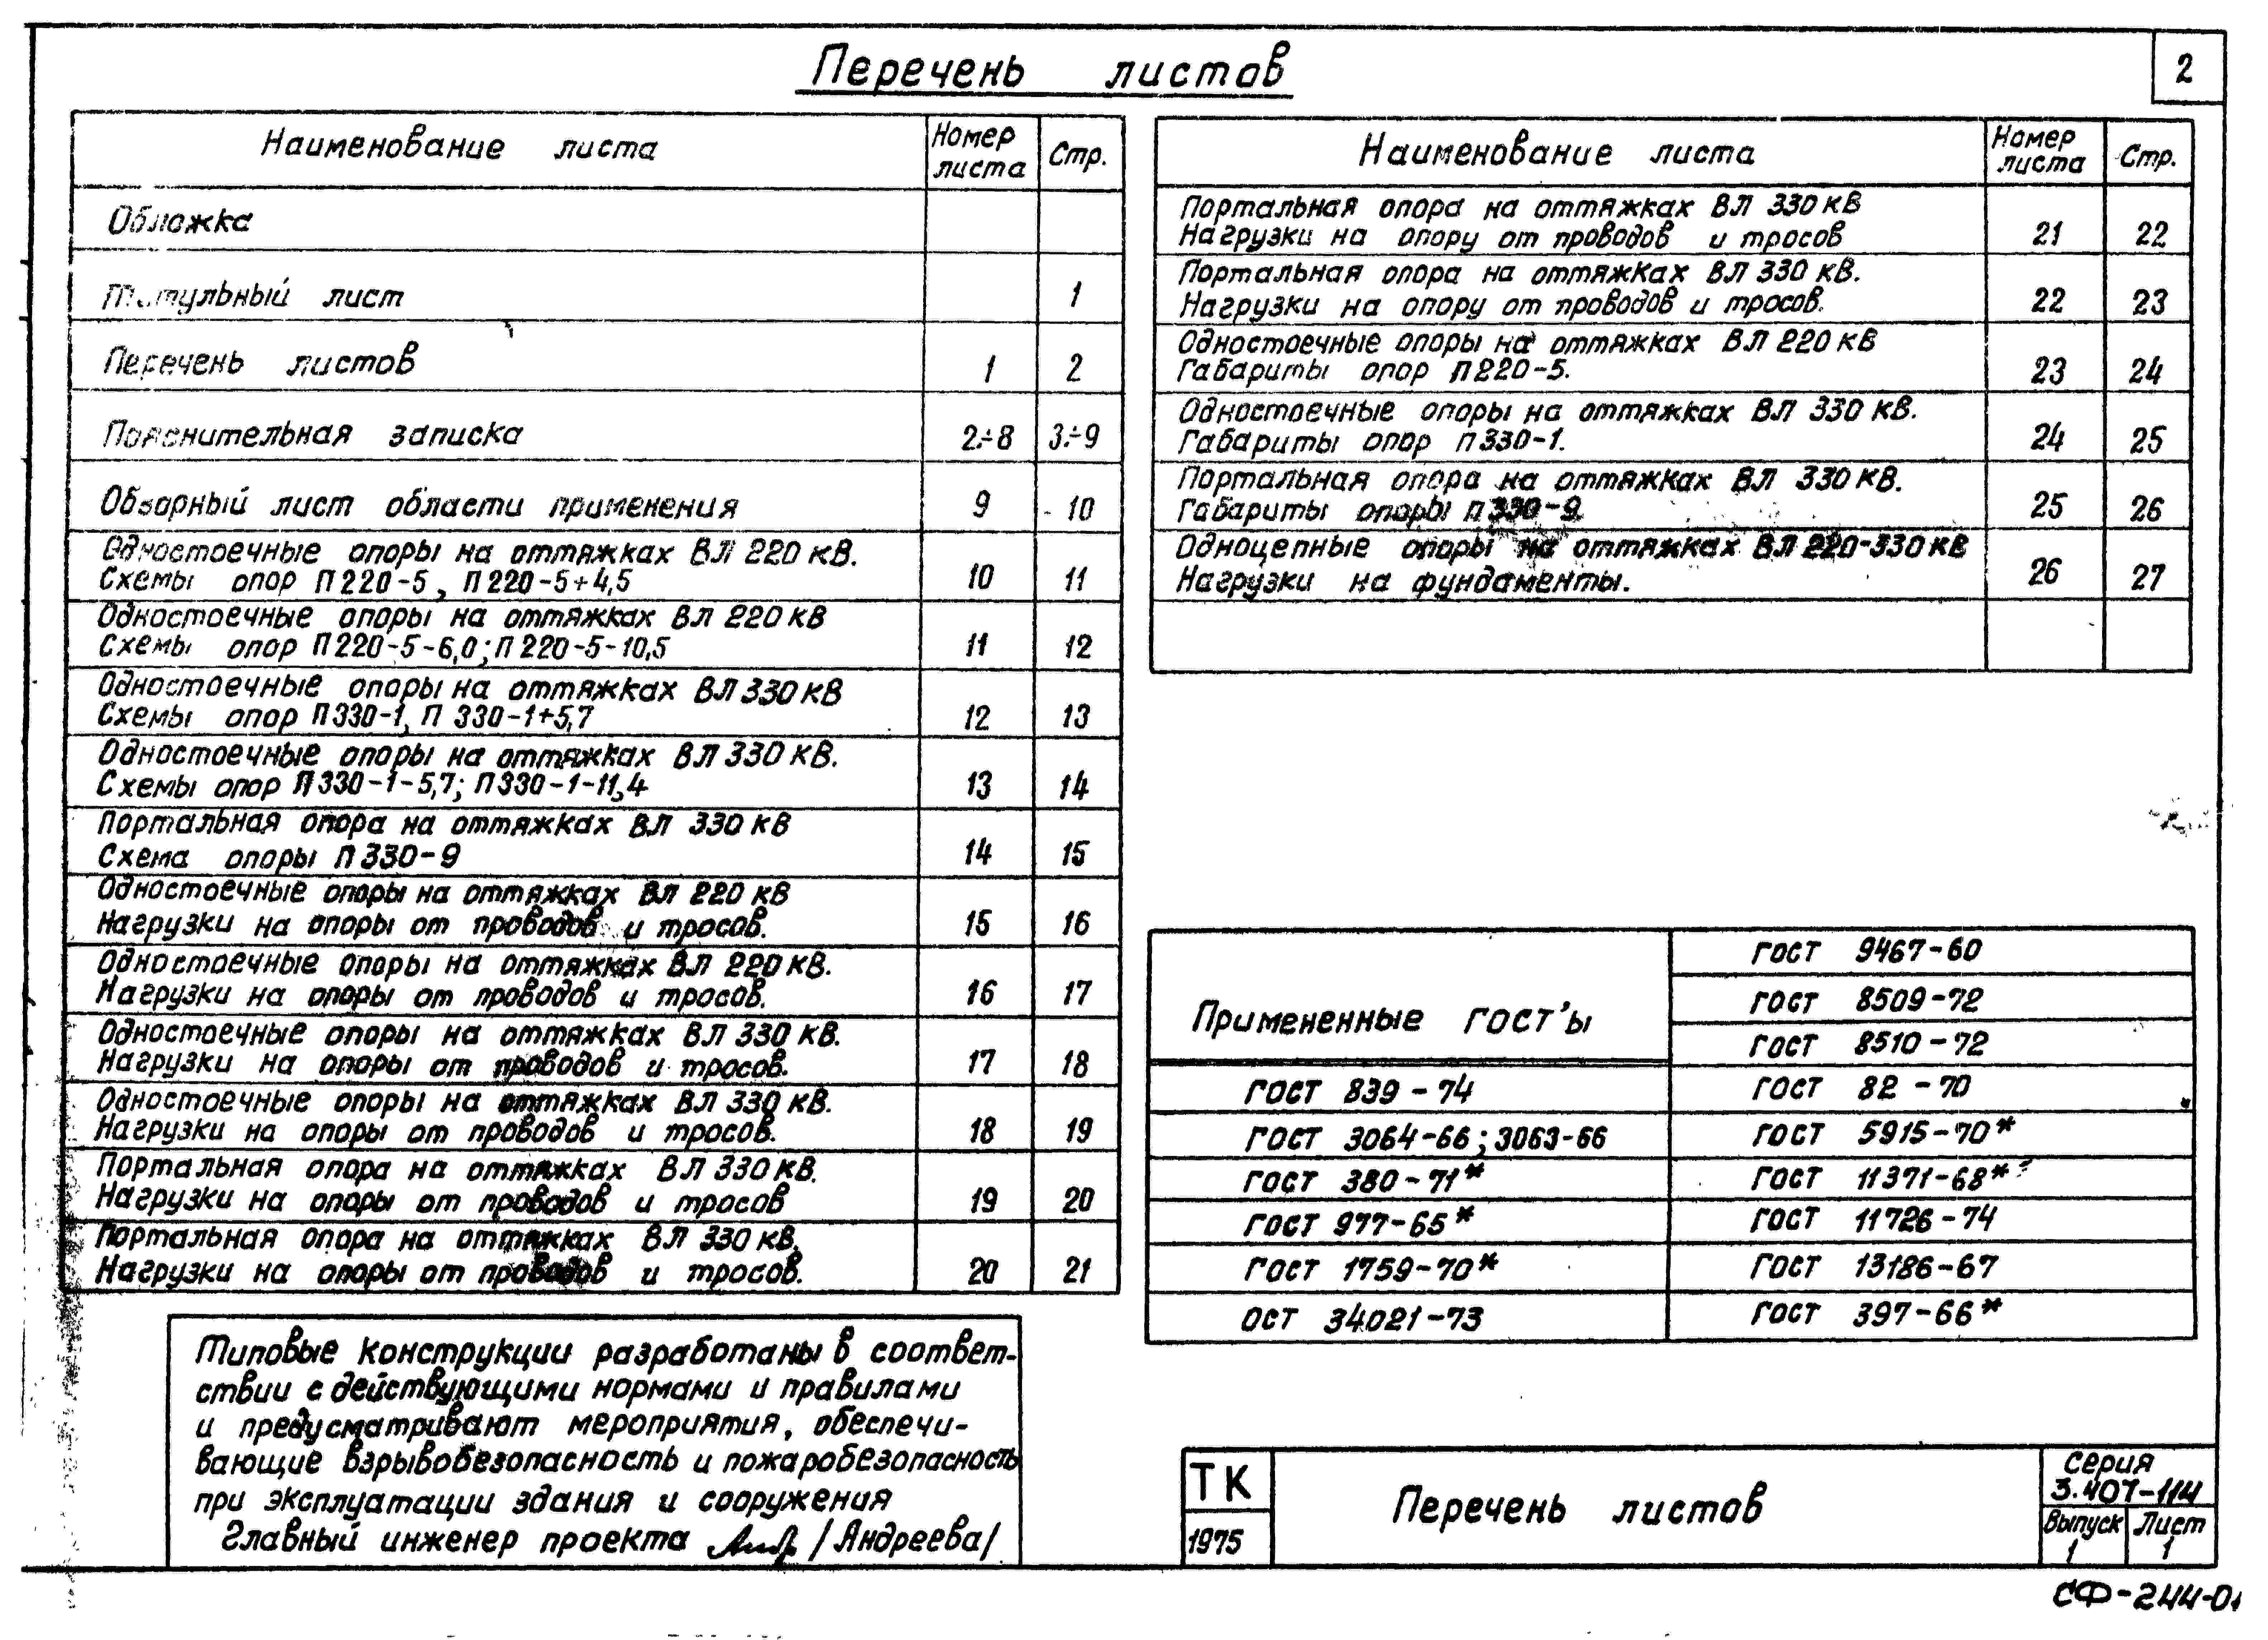 2
Перечень листов
Наименование листа | Номер листа | Стр.
Обложка
Титульный лист | 1
Перечень листов | 1 | 2
Пояснительная записка | 2÷8 | 3÷9
Обзорный лист области применения | 9 | 10
Одностоечные опоры на оттяжках ВЛ 220 кВ.
Схемы опор П220-5, П220-5+4,5 | 10 | 11
Одностоечные опоры на оттяжках ВЛ 220 кВ
Схемы опор П220-5-6,0; П220-5-10,5 | 11 | 12
Одностоечные опоры на оттяжках ВЛ 330 кВ
Схемы опор П330-1, П 330-1+5,7 | 12 | 13
Одностоечные опоры на оттяжках ВЛ 330 кВ.
Схемы опор П330-1-5,7; П330-1-11,4 | 13 | 14
Портальная опора на оттяжках ВЛ 330 кВ
Схема опоры П330-9 | 14 | 15
Одностоечные опоры на оттяжках ВЛ 220 кВ
Нагрузки на опоры от проводов и тросов. | 15 | 16
Одностоечные опоры на оттяжках ВЛ 220 кВ.
Нагрузки на опоры от проводов и тросов. | 16 | 17
Одностоечные опоры на оттяжках ВЛ 330 кВ.
Нагрузки на опоры от проводов и тросов. | 17 | 18
Одностоечные опоры на оттяжках ВЛ 330 кВ.
Нагрузки на опоры от проводов и тросов. | 18 | 19
Портальная опора на оттяжках ВЛ 330 кВ.
Нагрузки на опоры от проводов и тросов | 19 | 20
Портальная опора на оттяжках ВЛ 330 кВ.
Нагрузки на опоры от проводов и тросов. | 20 | 21
Наименование листа | Номер листа | Стр.
Портальная опора на оттяжках ВЛ 330 кВ
Нагрузки на опору от проводов и тросов | 21 | 22
Портальная опора на оттяжках ВЛ 330 кВ.
Нагрузки на опору от проводов и тросов. | 22 | 23
Одностоечные опоры на оттяжках ВЛ 220 кВ
Габариты опор П220-5. | 23 | 24
Одностоечные опоры на оттяжках ВЛ 330 кВ.
Габариты опор П330-1. | 24 | 25
Портальная опора на оттяжках ВЛ 330 кВ.
Габариты опоры П330-9. | 25 | 26
Одноцепные опоры на оттяжках ВЛ 220-330 кВ
Нагрузки на фундаменты. | 26 | 27
Примененные ГОСТ'ы
ГОСТ 839-74
ГОСТ 3064-66; 3063-66
ГОСТ 380-71*
ГОСТ 977-65*
ГОСТ 1759-70*
ОСТ 34021-73
ГОСТ 9467-60
ГОСТ 8509-72
ГОСТ 8510-72
ГОСТ 82-70
ГОСТ 5915-70*
ГОСТ 11371-68*
ГОСТ 11726-74
ГОСТ 13186-67
ГОСТ 397-66*
Типовые конструкции разработаны в соответ-
ствии с действующими нормами и правилами
и предусматривают мероприятия, обеспечи-
вающие взрывобезопасность и пожаробезопасность
при эксплуатации здания и сооружения
Главный инженер проекта /Андреева/
ТК
1975
Перечень листов
Серия
3.407-114
Выпуск Лист
1 1
СФ-244-01